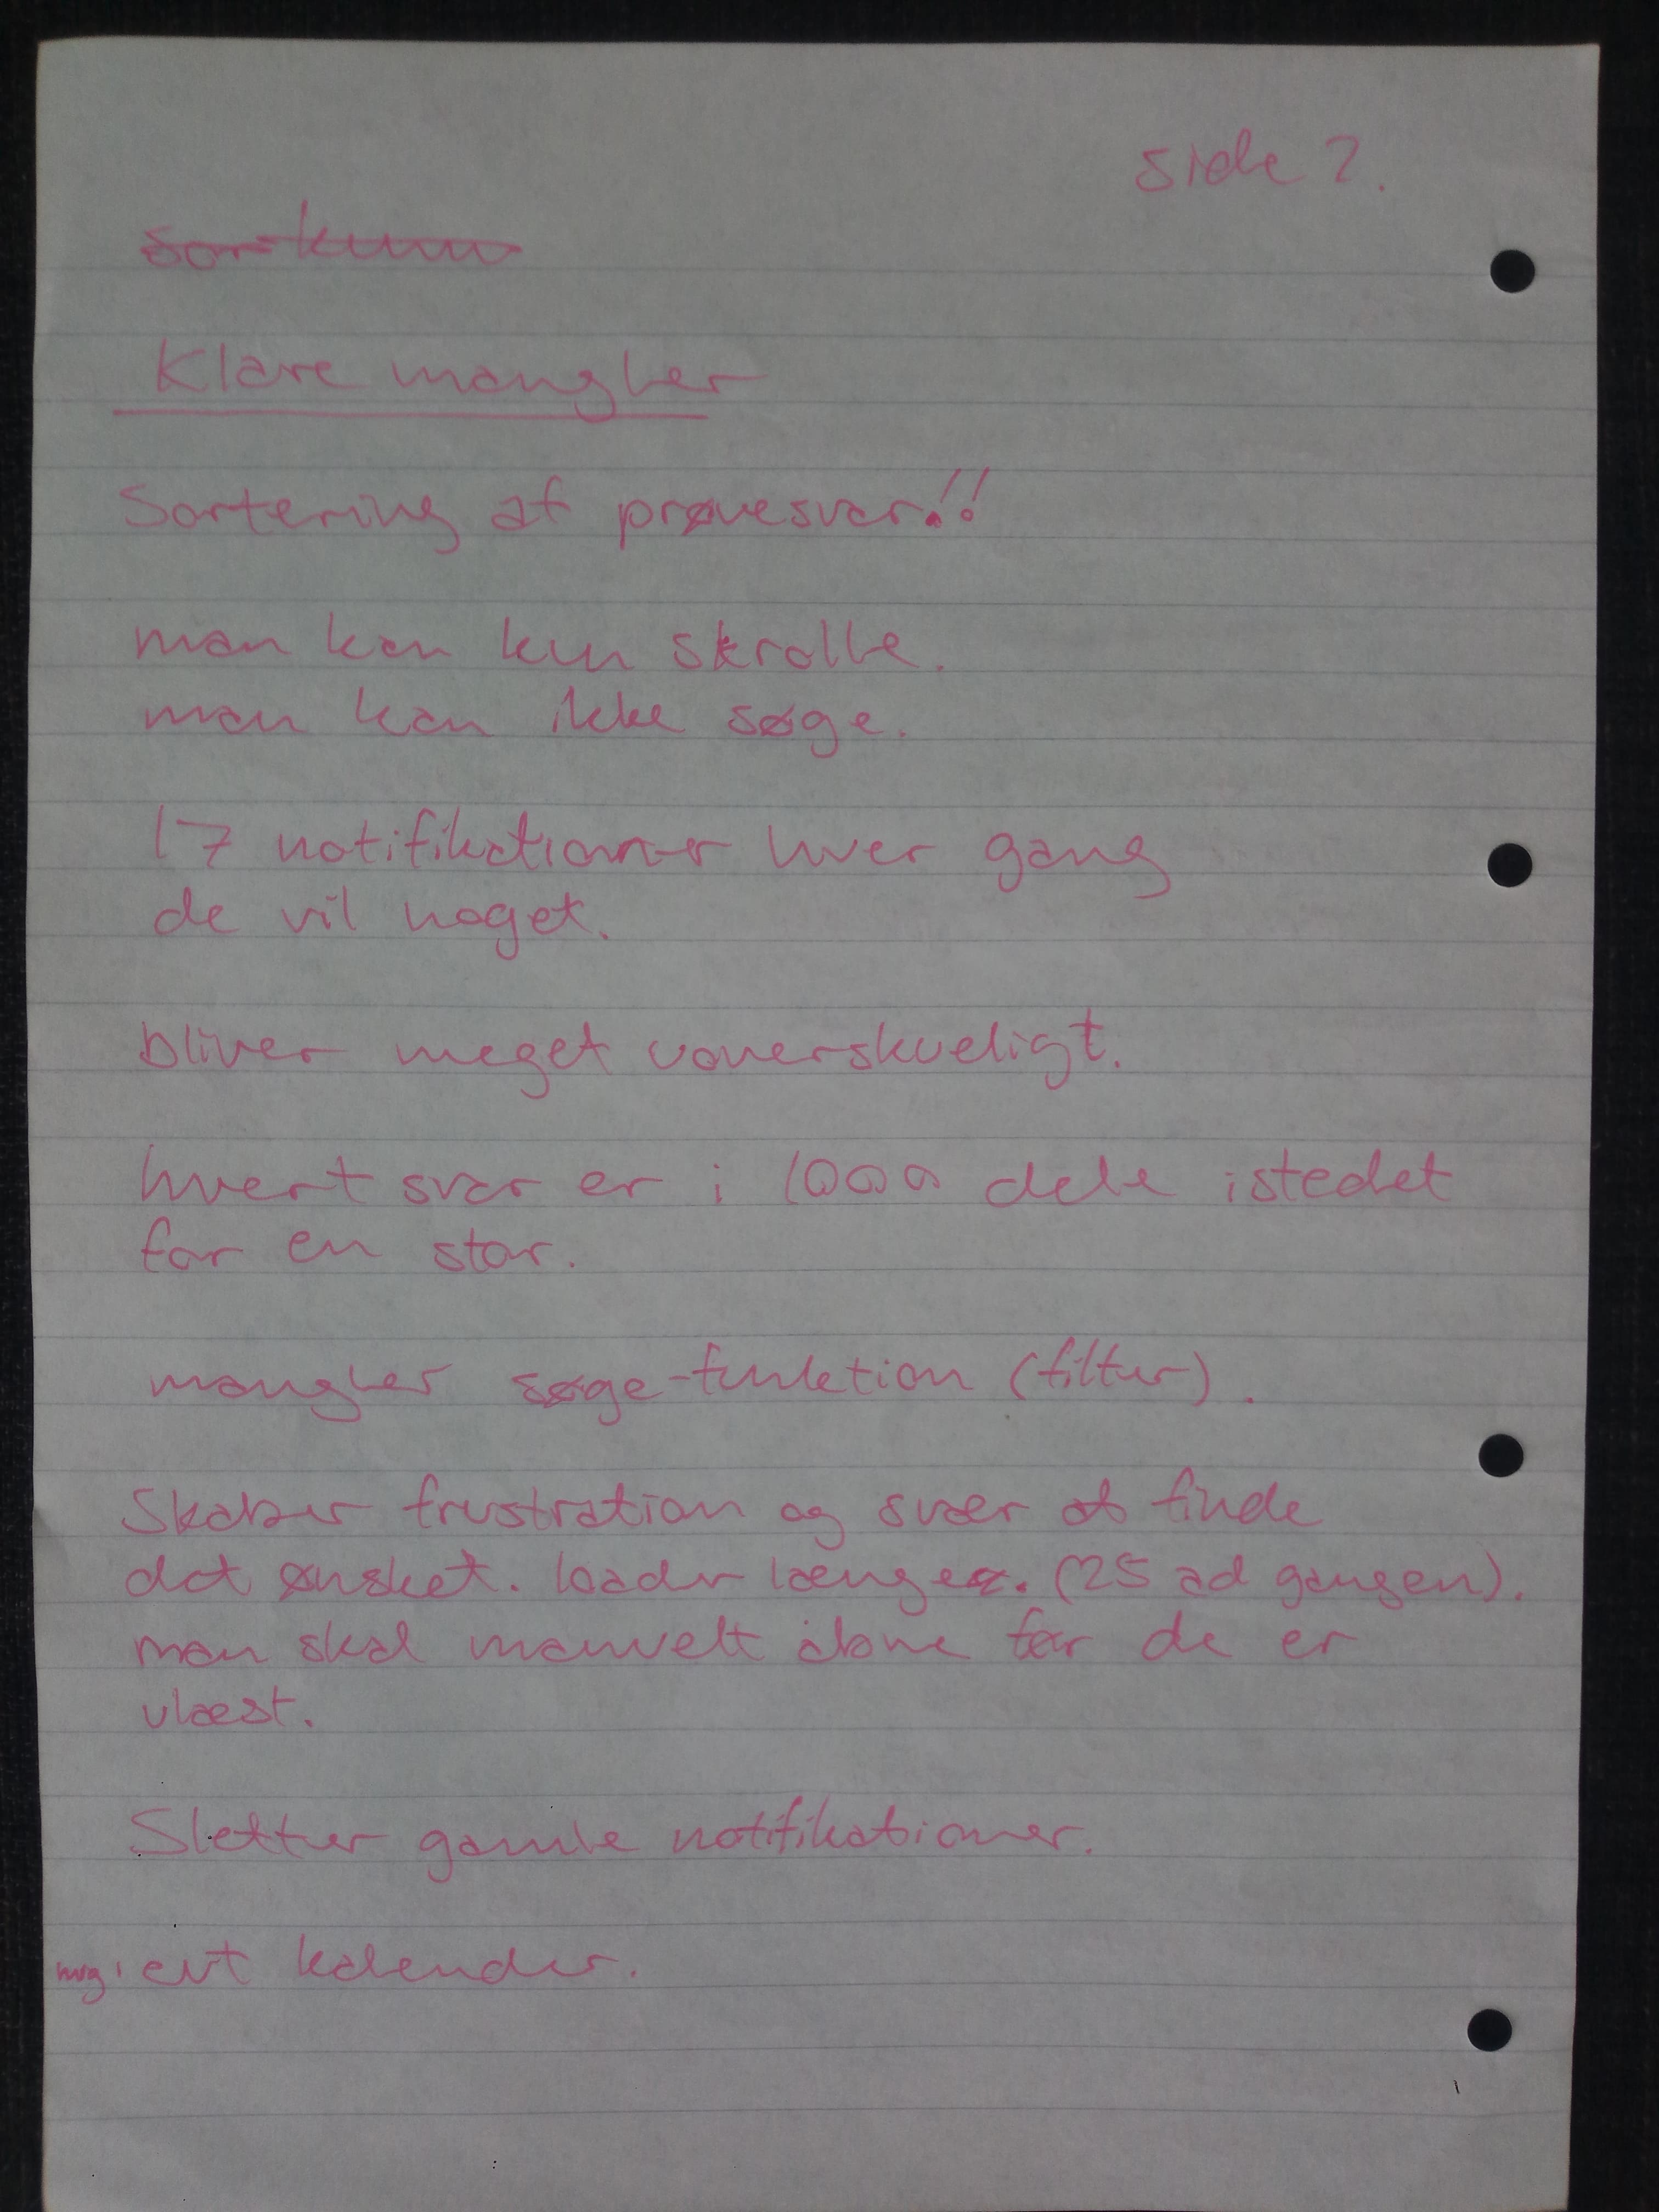 side 2.
Klare mangler
Sortering af prøvesvar!!
man kan kun skrolle.
man kan ikke søge.
17 notifikationer hver gang
de vil noget.
bliver meget uoverskueligt.
hvert svar er i 1000 dele istedet
for en stor.
mangler søge-funktion (filter).
Skaber frustration og svær at finde
det ønsket. loader længe. (25 ad gangen).
man skal manuelt åbne før de er
vlæst.
Sletter gamle notifikationer.
evt kalender.